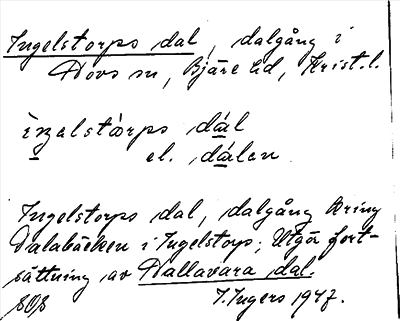 Ingelstorps dal, dalgång i
Hovs sn, Bjäre hd, Krist. l.
ìngelstàrps dál
el. dálen
Ingelstorps dal, dalgång kring
Dalabäcken i Ingelstorp; Utgör fort-
sättning av Hallavara dal.
SOS I. Ingers 1947.